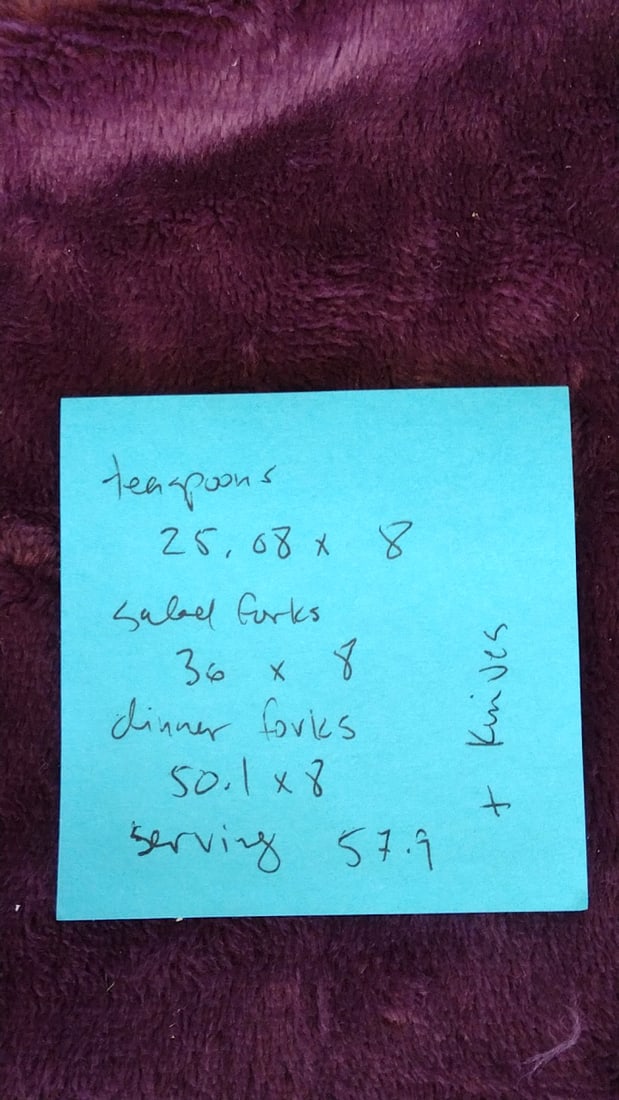 teaspoons
25.08 x 8
salad forks
36 x 8
dinner forks
50.1 x 8
serving 57.9
+ Knives